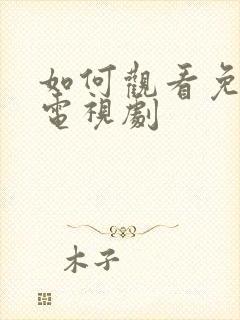 如何觀看免
電視劇
木子